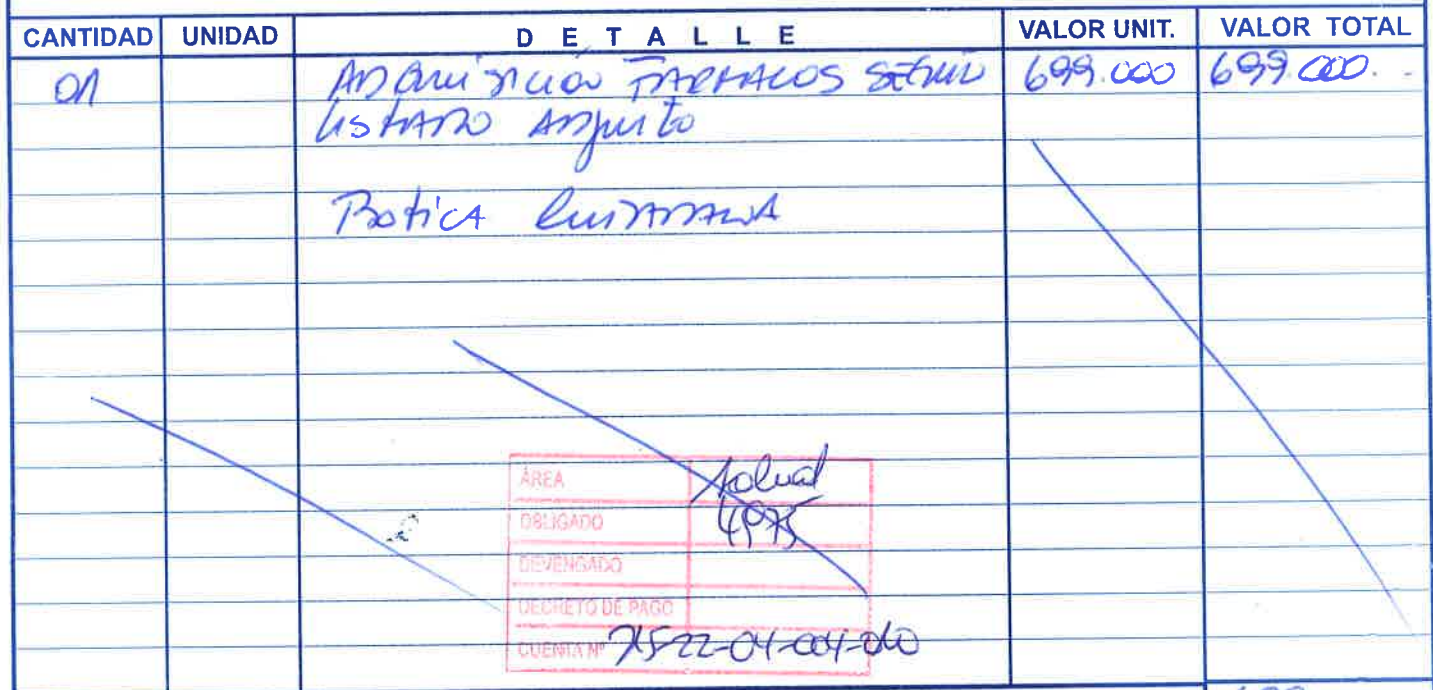 CANTIDAD UNIDAD DETALLE VALOR UNIT. VALOR TOTAL
01 ADQUISICIÓN FARMACOS SEGUN 699.000 699.000.-
LISTADO ADJUNTO
BOTICA CIUDADANA
ÁREA Salud
OBLIGADO 4975
DEVENGADO
DECRETO DE PAGO
CUENTA Nº 215-22-04-004-010